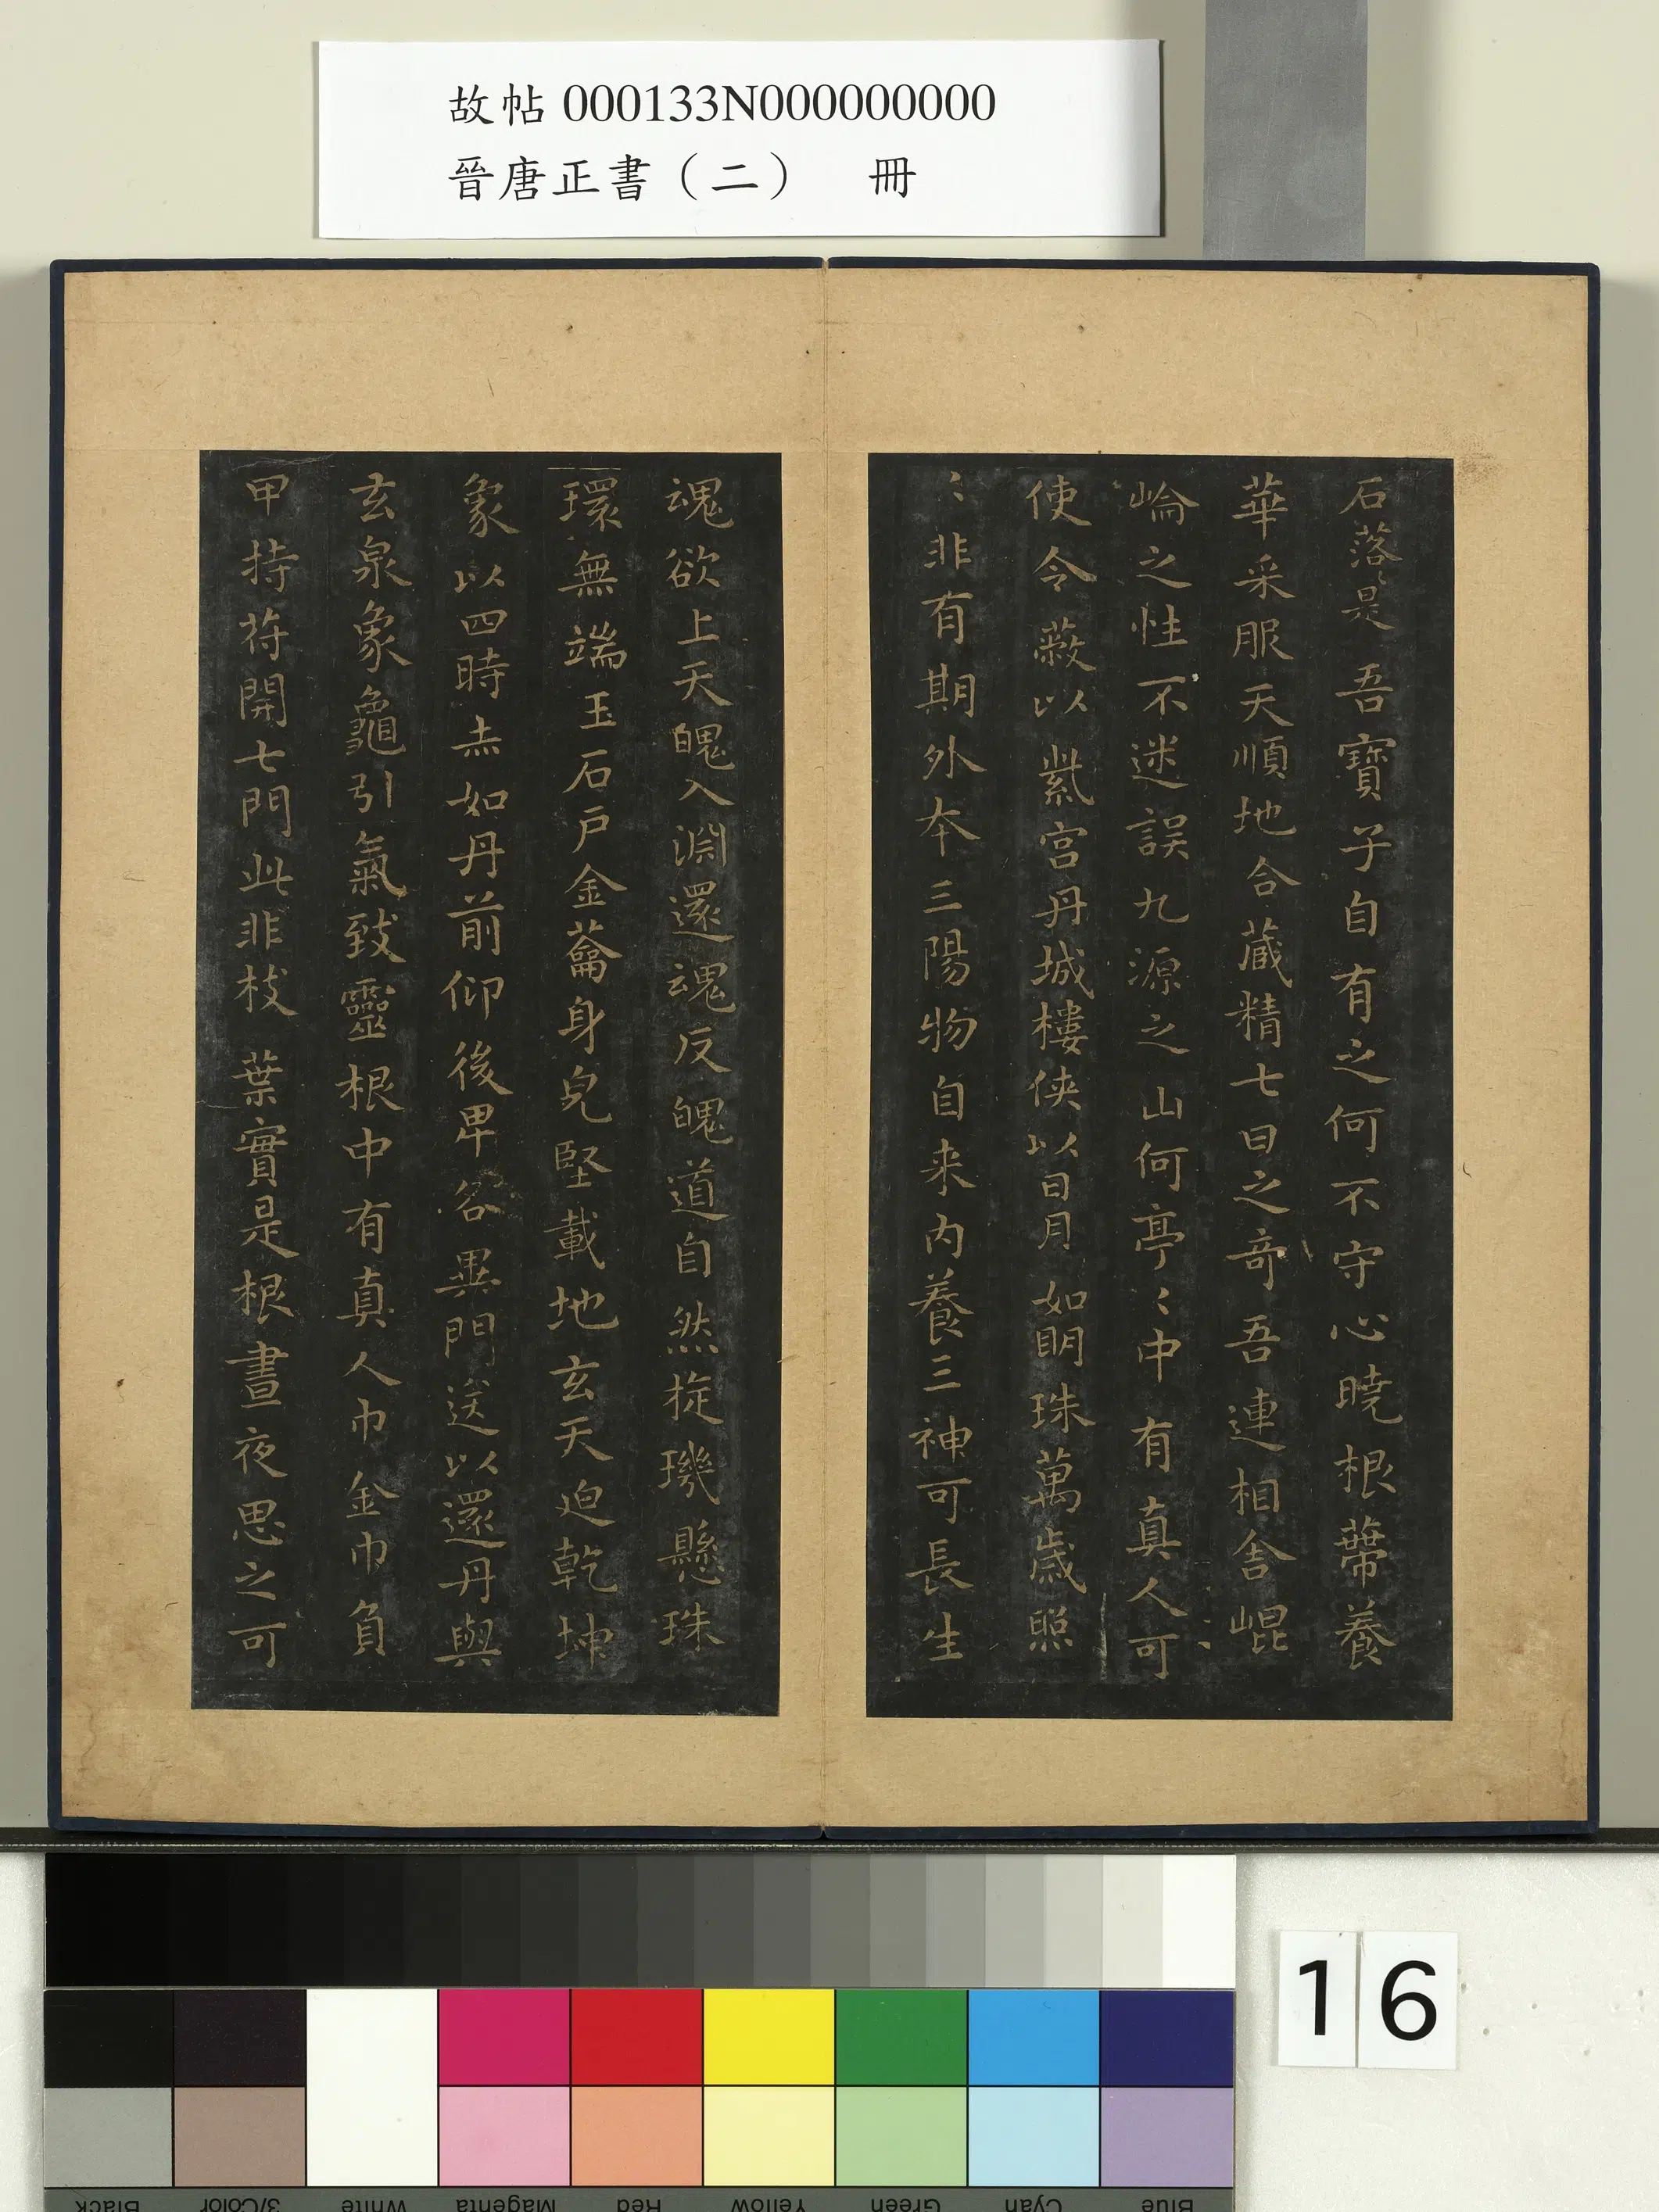 故帖 000133N000000000
晉唐正書（二） 冊
石落是吾寶子自有之何不守心曉根蔕養
華采服天順地合藏精七日之奇吾連相舍崐
崘之性不迷誤九源之山何亭〻中有真人可
使令蔽以紫宮丹城樓俠以日月如眀珠萬歲照
〻非有期外本三陽物自来內養三神可長生
魂欲上天魄入淵還魂反魄道自然㫌璣懸珠
環無端玉石戶金蘥身皃堅載地玄天迫乾坤
象以四時赤如丹前仰後卑各異門送以還丹與
玄泉象龜引氣致靈根中有真人巾金巾負
甲持苻開七門此非枝葉實是根晝夜思之可
16
Black
3/Color
White
Magenta
Red
Yellow
Green
Cyan
Blue